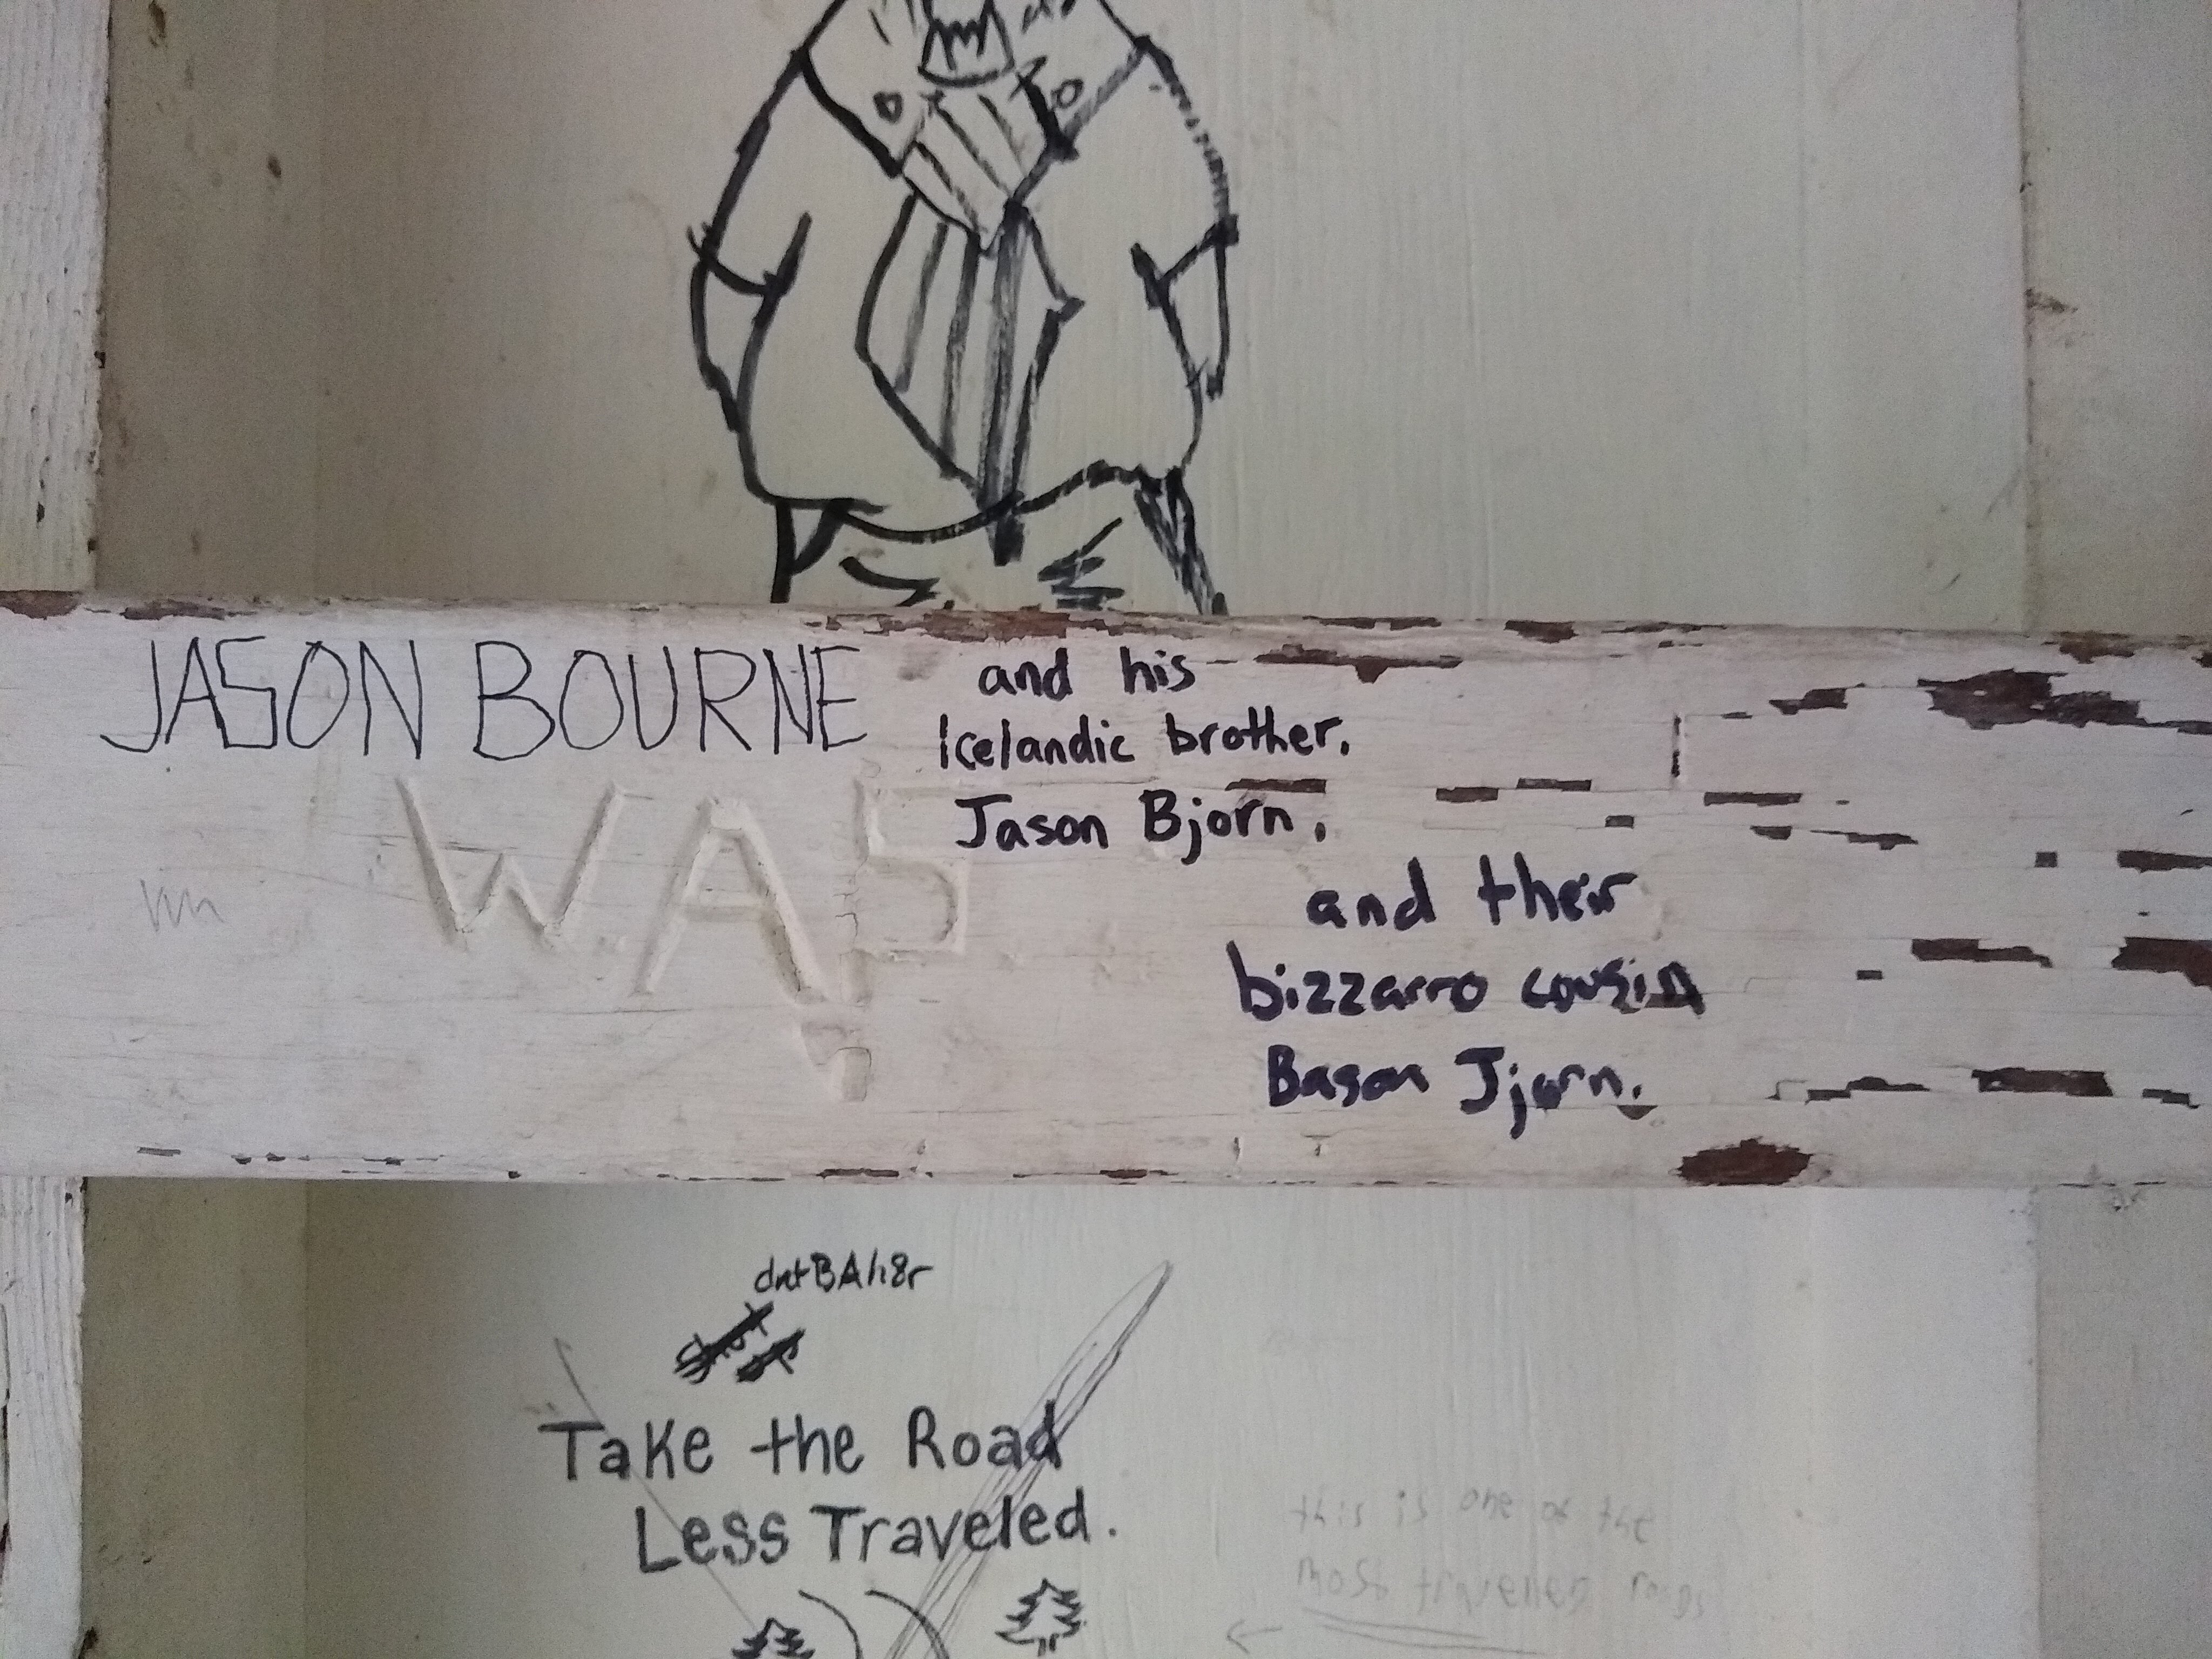 JASON BOURNE
and his
Icelandic brother.
Jason Bjorn.
WAS
and their
bizzarro cousin
Bason Jjorn.
Take the Road
Less Traveled.
this is one of the
most traveled roads